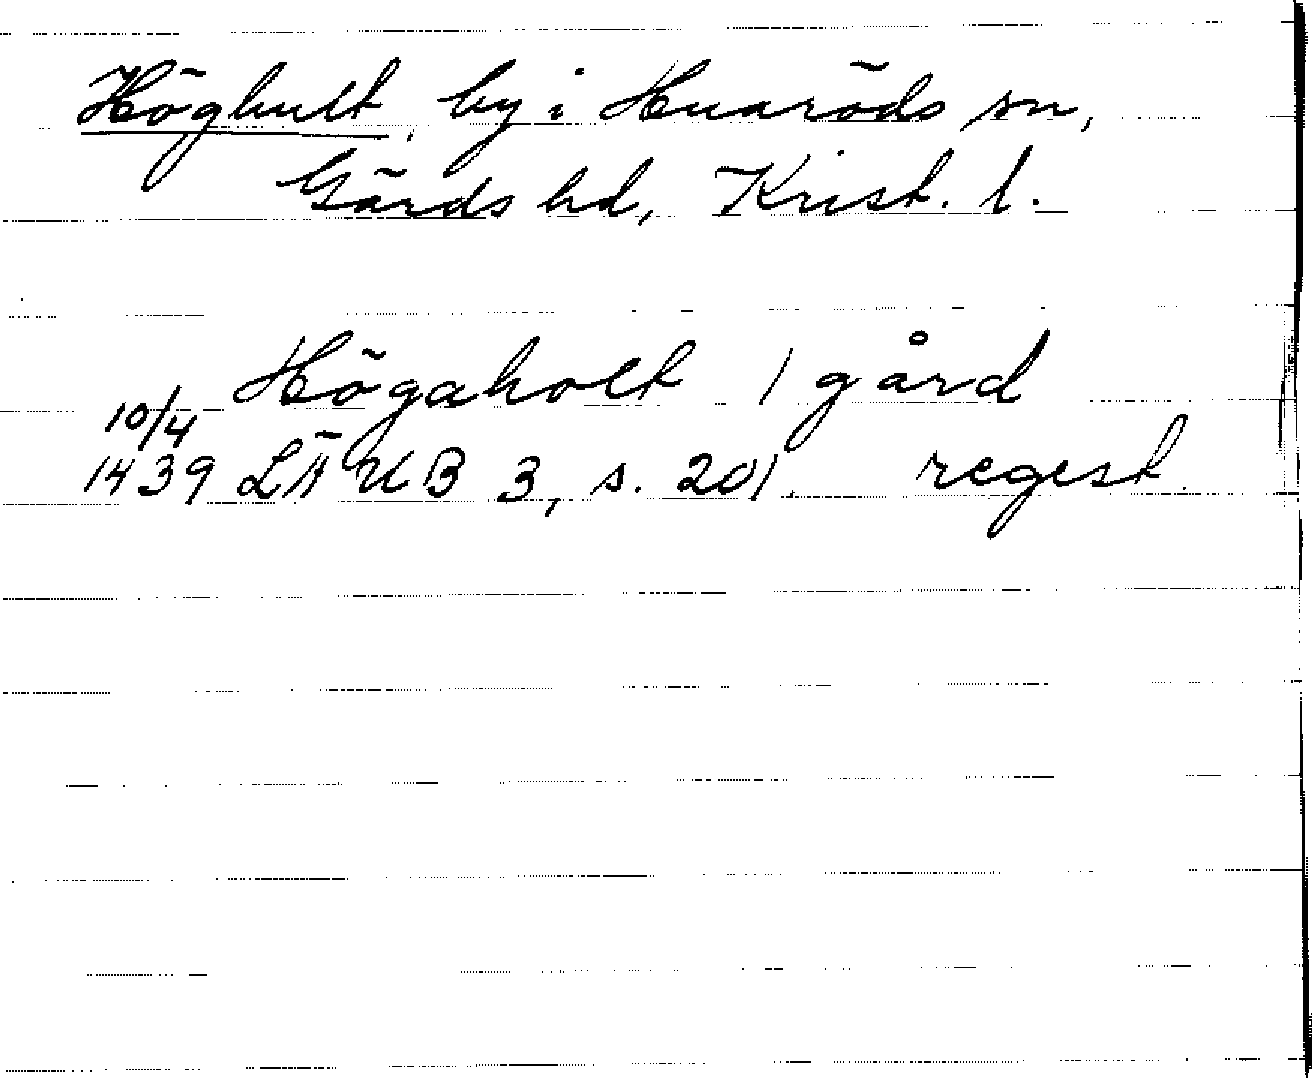 Höghult, by i Huaröds sn,
Gärds hd, Krist. l.
Högaholt 1 gård
10/4
1439 LÄUB 3, s. 201. regest.